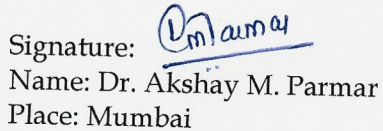 Signature:
Name: Dr. Akshay M. Parmar
Place: Mumbai